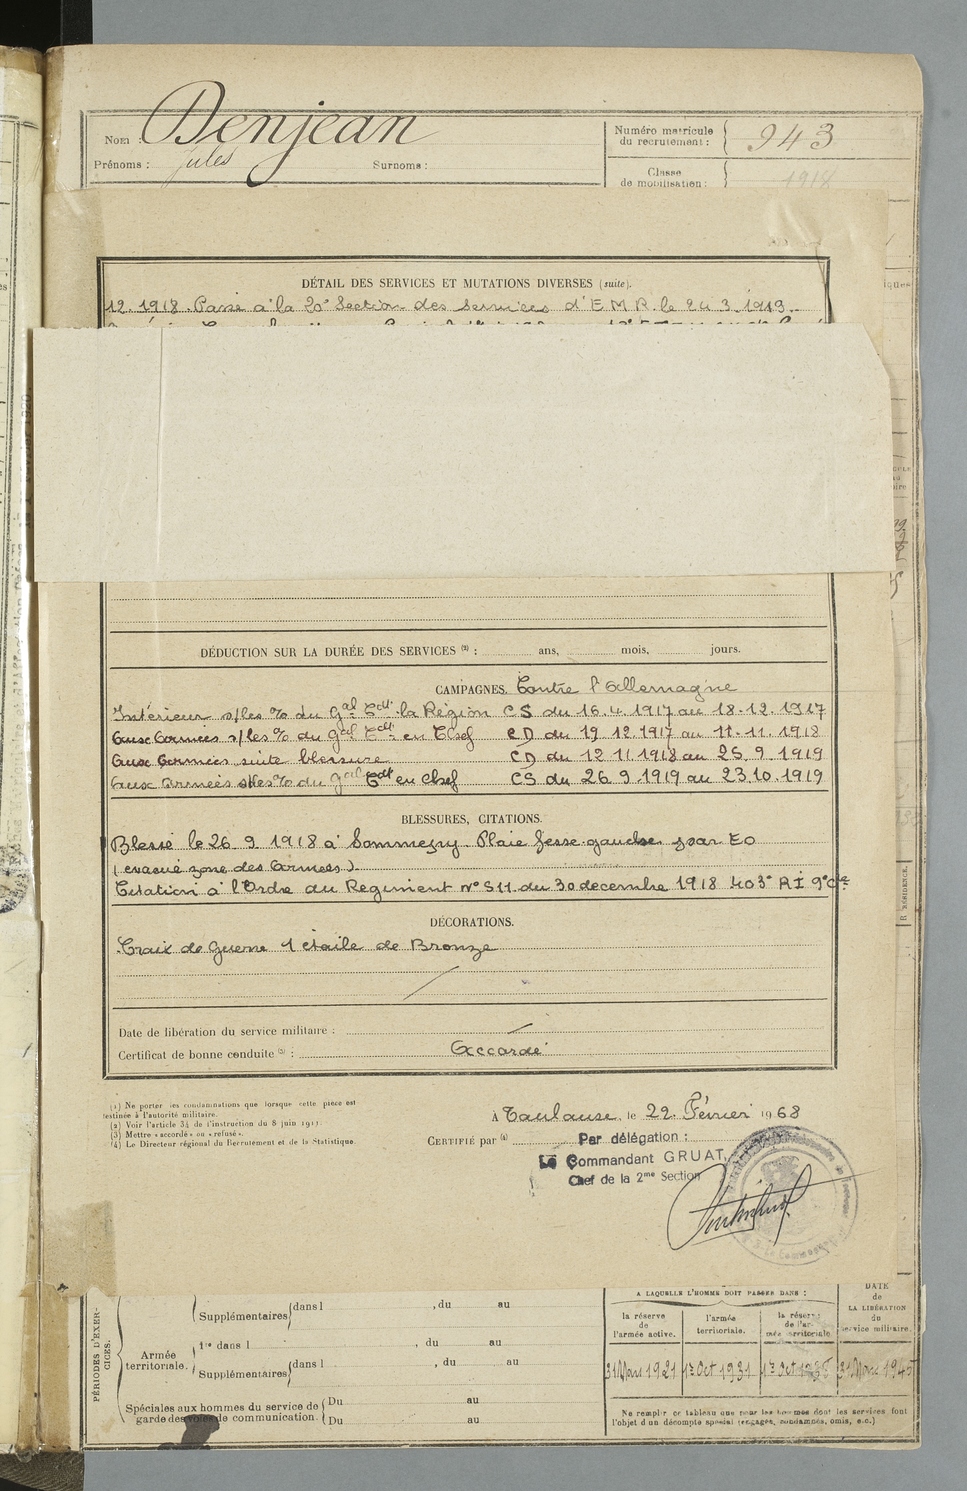 Nom : Denjean
Prénoms : Jules Surnoms :
Numéro matricule du recrutement : 943
Classe de mobilisation : 1918
DÉTAIL DES SERVICES ET MUTATIONS DIVERSES (suite).
12.1918. Passé à la 20e Section des Services d'E M R. le 24.3.1919.
DÉDUCTION SUR LA DURÉE DES SERVICES (2) : ans, mois, jours.
CAMPAGNES. Contre l'Allemagne
Intérieur s/les % du Gal Cdt la Région CS du 16.4.1917 au 18.12.1917
Aux Armées s/les % du Gal Cdt en Chef CD du 19 12.1917 au 11.11.1918
Aux Armées suite blessure CD du 12 11 1918 au 25.9.1919
Aux Armées s/les % du Gal Cdt en Chef CS du 26 9.1919 au 23 10.1919
BLESSURES, CITATIONS.
Blessé le 26.9.1918 à Sommepy. Plaie fesse gauche par EO
(evacué zone des Armées).
Citation à l'Ordre du Regiment N° 511 du 30 decembre 1918 403e RI 9e Cie
DÉCORATIONS.
Croix de Guerre 1 étoile de Bronze
Date de libération du service militaire :
Certificat de bonne conduite (3) : Accordé
(1) Ne porter les condamnations que lorsque cette pièce est
destinée à l'autorité militaire.
(2) Voir l'article 34 de l'instruction du 8 juin 1911.
(3) Mettre « accordé » ou « refusé ».
(4) Le Directeur régional du Recrutement et de la Statistique.
À Toulouse, le 22 Février 1968
CERTIFIÉ par (4) Par délégation :
Le Commandant GRUAT,
Chef de la 2me Section
PÉRIODES D'EXERCICES.
Supplémentaires dans l , du au
Armée territoriale.
1re dans l , du au
Supplémentaires dans l , du au
Spéciales aux hommes du service de garde des voies de communication.
Du au
Du au
A LAQUELLE L'HOMME DOIT PASSER DANS :
la réserve de l'armée active.
l'armée territoriale.
la réserve de l'armée territoriale
DATE de LA LIBÉRATION du service militaire.
31 Mars 1921 1er Oct 1931 1er Oct 1938
Ne remplir ce tableau que pour les hommes dont les services font
l'objet d'un décompte spécial (engagés, condamnés, omis, etc.)